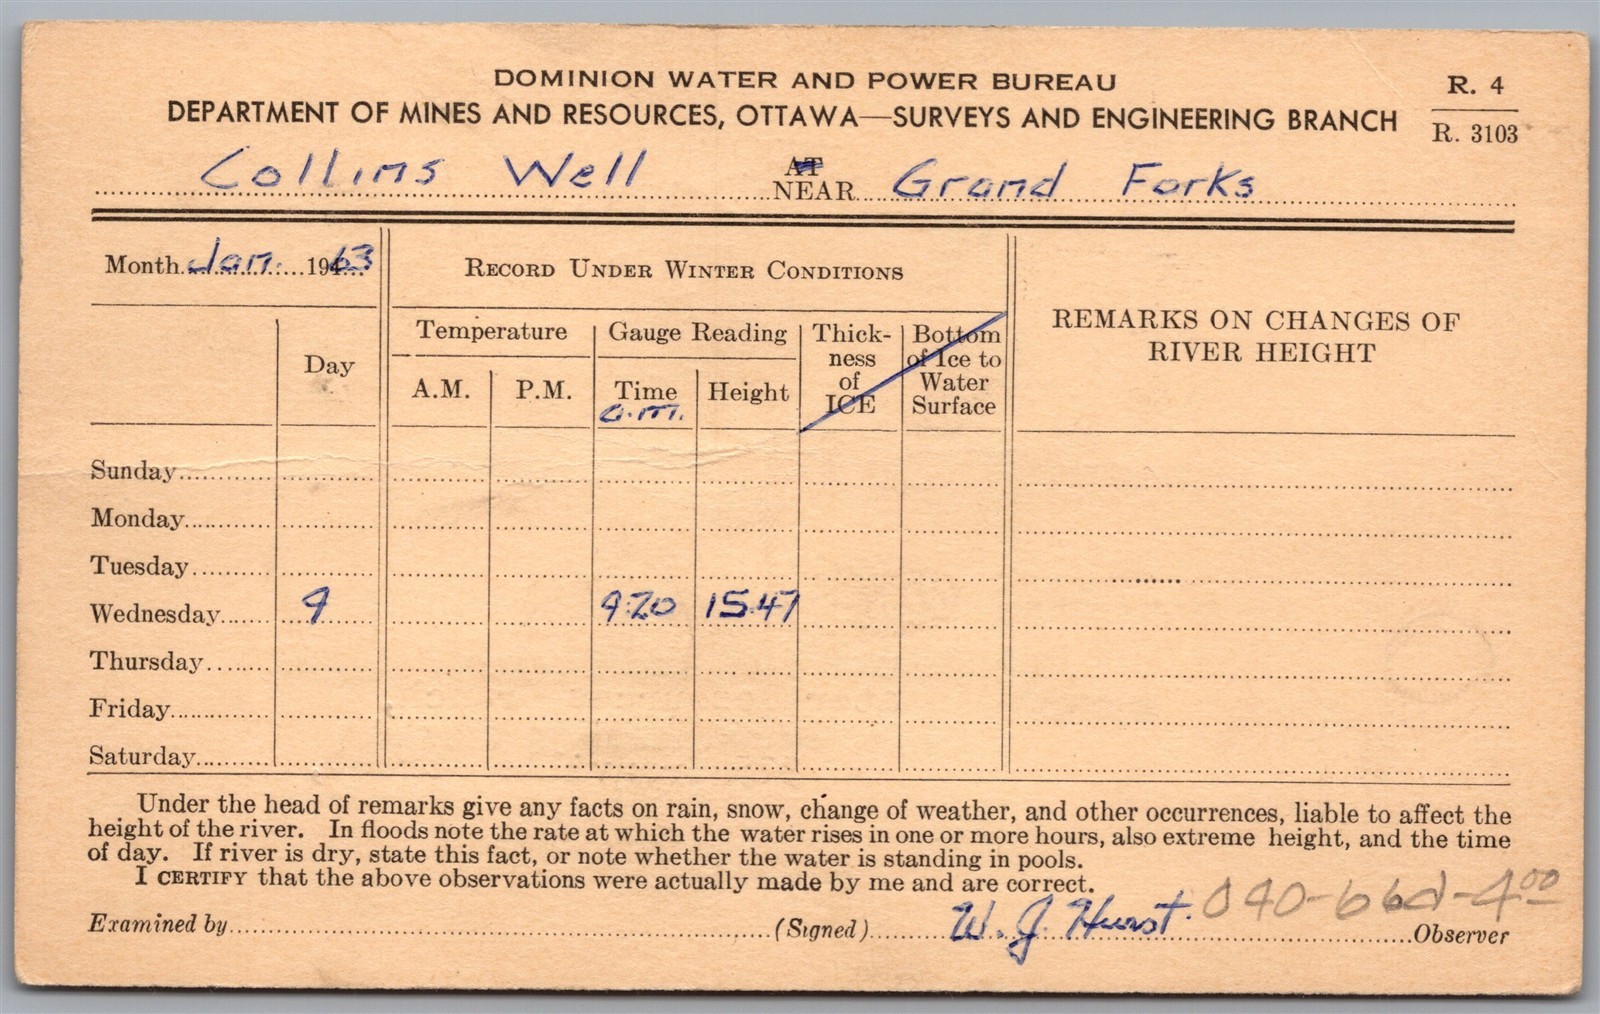 DOMINION WATER AND POWER BUREAU
R. 4
DEPARTMENT OF MINES AND RESOURCES, OTTAWA—SURVEYS AND ENGINEERING BRANCH
R. 3103
Collins Well AT NEAR Grand Forks
Month Jan. 1963
RECORD UNDER WINTER CONDITIONS
REMARKS ON CHANGES OF
RIVER HEIGHT
Day
Temperature
A.M. P.M.
Gauge Reading
Time Height
a.m.
Thick-
ness
of
ICE
Bottom
of Ice to
Water
Surface
Sunday
Monday
Tuesday
Wednesday 9 9:20 15.47
Thursday
Friday
Saturday
Under the head of remarks give any facts on rain, snow, change of weather, and other occurrences, liable to affect the
height of the river. In floods note the rate at which the water rises in one or more hours, also extreme height, and the time
of day. If river is dry, state this fact, or note whether the water is standing in pools.
I CERTIFY that the above observations were actually made by me and are correct.
Examined by (Signed) W. J. Hurst Observer